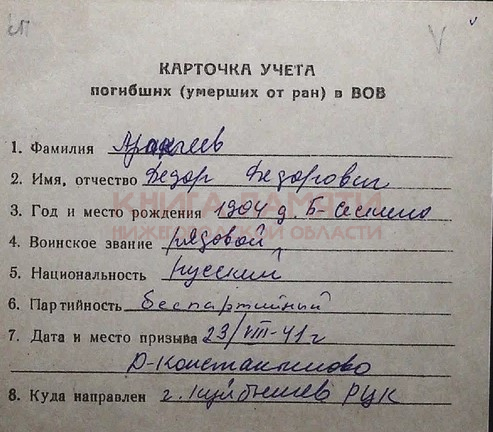 КАРТОЧКА УЧЕТА
погибших (умерших от ран) в ВОВ
1. Фамилия
2. Имя, отчество Федор Федорович
3. Год и место рождения 1904 д. Б-
КНИГА ПАМЯТИ
НИЖЕГОРОДСКОЙ ОБЛАСТИ
4. Воинское звание рядовой
5. Национальность русский
6. Партийность беспартийный
7. Дата и место призыва 23/VIII-41 г
Д-Константиново
8. Куда направлен г. Куйбышев РЦК